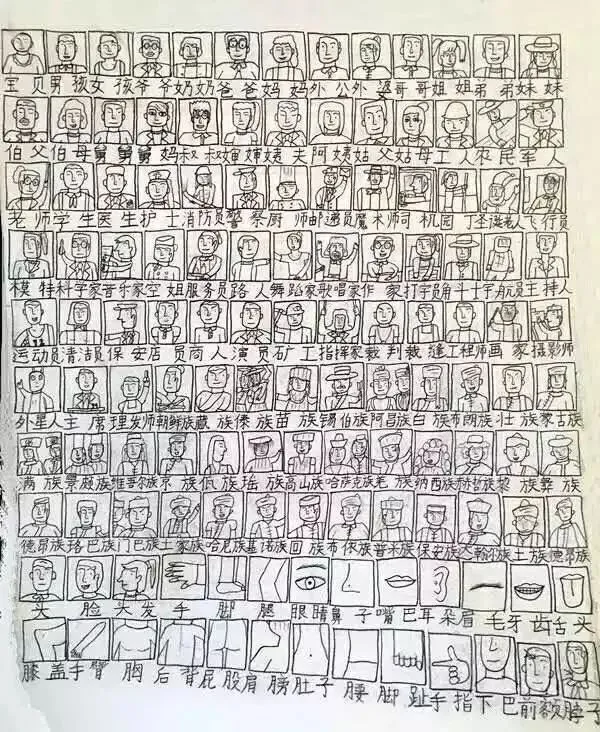 宝贝男孩女孩爷爷奶奶爸爸妈妈外公外婆哥哥姐姐弟弟妹妹
伯父伯母舅舅舅妈叔叔婶婶姨夫阿姨姑父姑母工人农民军人
老师学生医生护士消防员警察厨师邮递员魔术师司机园丁圣诞老人飞行员
模特科学家音乐家空姐服务员路人舞蹈家歌唱家作家打字员角斗士宇航员主持人
运动员清洁员保安店员商人演员矿工指挥家裁判裁缝工程师画家摄影师
外星人主席理发师朝鲜族藏族傣族苗族锡伯族阿昌族白族布朗族壮族蒙古族
满族景颇族维吾尔族京族佤族瑶族高山族哈萨克族羌族纳西族赫哲族黎族彝族
德昂族珞巴族门巴族土家族哈尼族基诺族回族布依族普米族保安族达斡尔族土族德昂族
头脸头发手脚腿眼睛鼻子嘴巴耳朵眉毛牙齿舌头
膝盖手臂胸后背屁股肩膀肚子腰脚趾手指下巴前额脖子